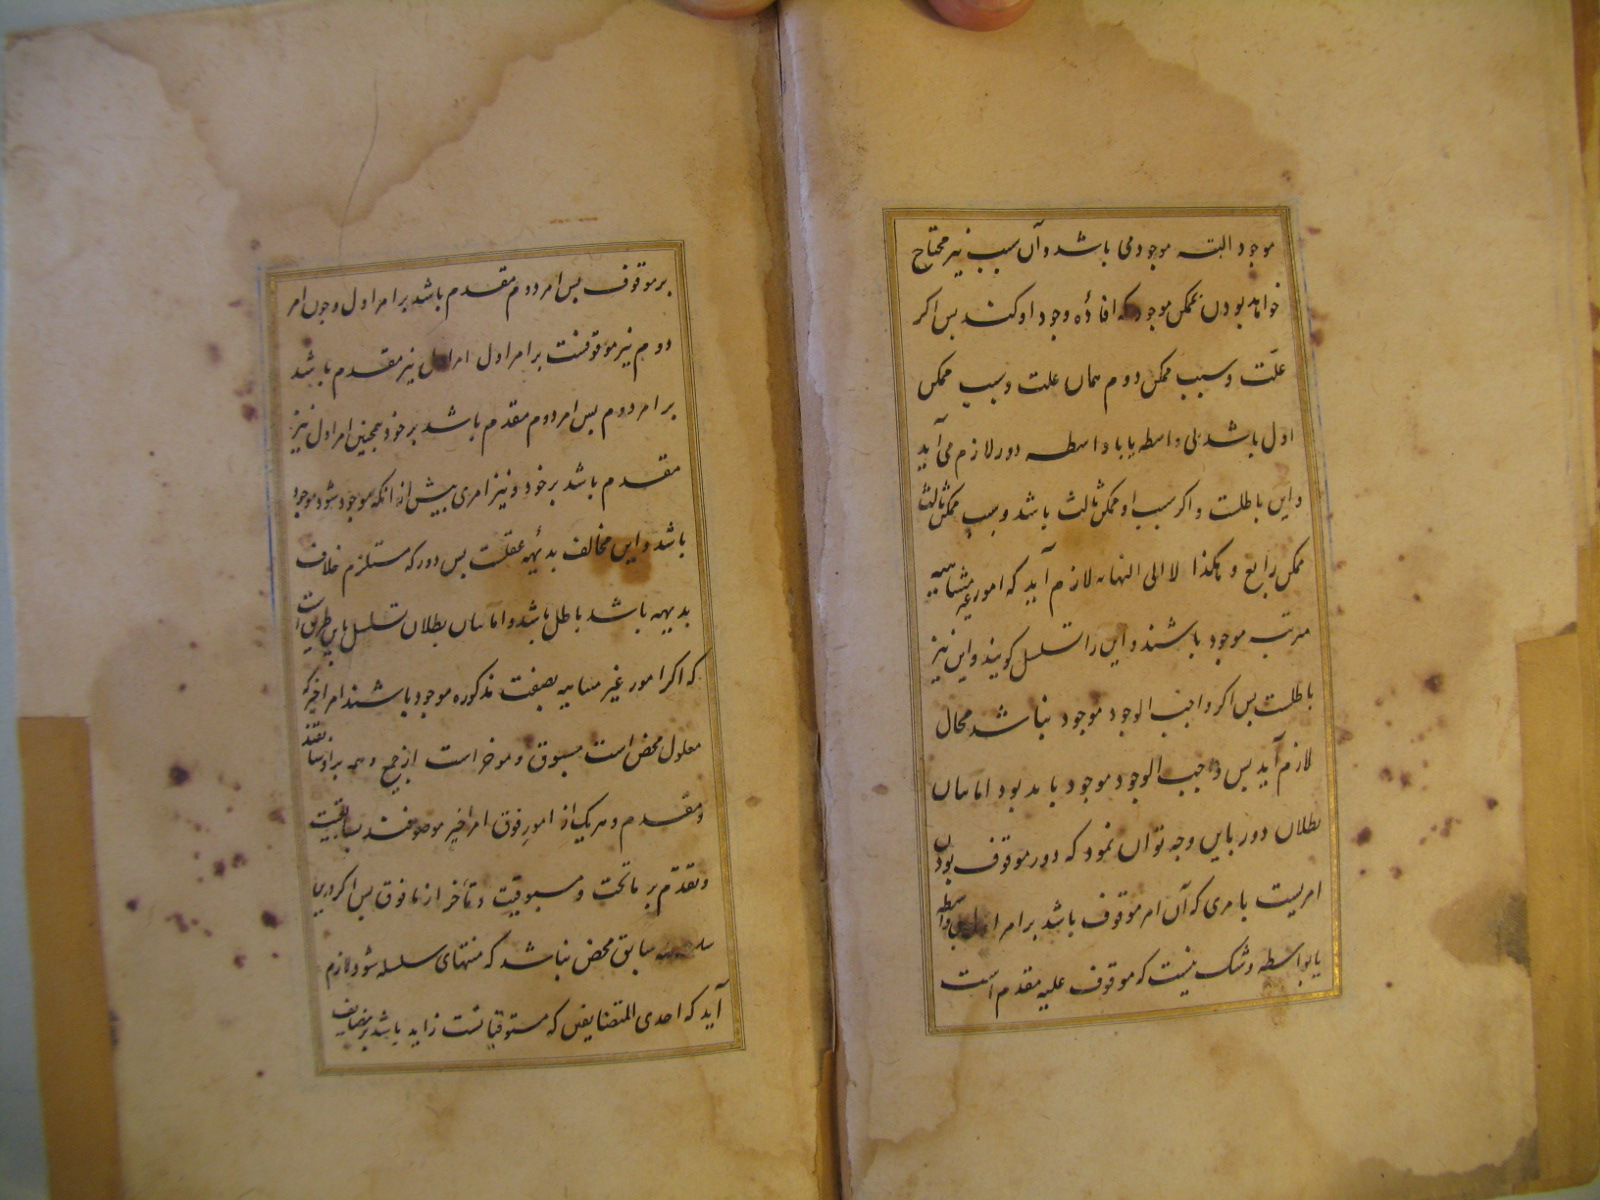 موجود البته موجود می باشد وآن سبب نیز محتاج
خواهد بودن بممکن موجود که افادهٔ وجود او کند بس اکر
علّت وسبب ممکن دوم همان علت وسبب ممکن
اول باشد بی واسطه یا با واسطه دور لازم می آید
واین باطلت واکر سبب او ممکن ثالث باشد وسبب ممکن ثالث
ممکن رابع وهکذا لا الی النهایه لازم آید که امور غیر متناهیه
مرتبه موجود باشند واین را تسلسل کویند واین نیز
باطلت بس اکر واجب الوجود موجود نباشد محال
لازم آید بس واجب الوجود موجود باید بود اما بیان
بطلان دور باین وجه توان نمود که دور موقوف بودن
امریست بامری که آن امر موقوف باشد بر امر اول بی واسطه
یا بواسطه وشک نیست که موقوف علیه مقدم است
بر موقوف بس امر دوم مقدم باشد بر امر اول وجون امر
دوم نیز موقوفست بر امر اول امر اول نیز مقدم باشد
بر امر دوم بس امر دوم مقدم باشد بر خود همچنین امر اول نیز
مقدم باشد بر خود ونیز امری بیش از انکه موجود شود موجود
باشد واین مخالف بدیهه عقلت بس دور که مستلزم خلاف
بدیهه باشد باطل باشد واما بیان بطلان تسلسل باین طریق است
که اکر امور غیر متناهیه بصفت مذکوره موجود باشند امر اخیر که
معلول محض است مسبوق وموخر است از جمیع وهمه براو سابقند
ومقدم وهریک از امور فوق امر اخیر موصوفند بسابقیت
وتقدّم بر ماتحت ومسبوقیت وتأخر از مافوق بس اکر درین
سلسله سابق محض نباشد که منتهای سلسله شود لازم
آید که احدی المتضایفین که مسبوقیتست زاید باشد بر متضایف